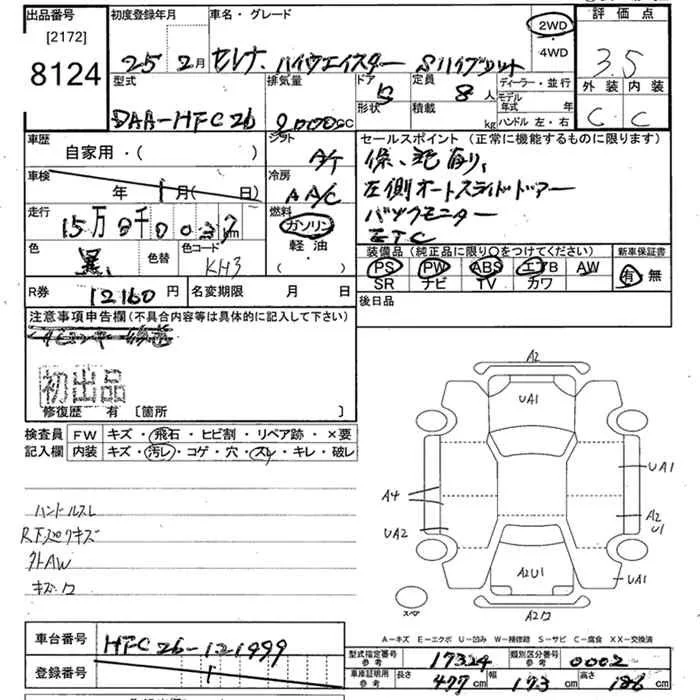 出品番号 初度登録年月 車名・グレード 評価点
[2172]
8124
25年2月 セレナ ハイウェイスター Sハイブリット
2WD
・4WD
3.5
型式 排気量 ドア 定員 ディーラー・並行 外装 内装
DAA-HFC26 2000cc 5 8人
形状 積載 kg
モデル年式 年
ハンドル 左・右
C C
車歴 シフト セールスポイント(正常に機能するものに限ります)
自家用・( ) A/T
保、記有り、
車検 年 1月( 日) 冷房 AA/C
左側オートスライドドアー
走行 15万0千0037km 燃料 ガソリン
軽油・
( )
バックモニター
ETC
色 黒 色替 色コード KH3
装備品(純正品に限り○をつけてください) 新車保証書
PS PW ABS エアB AW
SR ナビ TV カワ
有・無
R券 12160円 名変期限 月 日 後日品
注意事項申告欄(不具合内容等は具体的に記入して下さい)
初出品
修復歴 有[箇所 ]
検査員 FW キズ・飛石・ヒビ割・リペア跡・×要
記入欄 内装 キズ・汚レ・コゲ・穴・スレ・キレ・破レ
ハンドルスレ
外AW
A2
UA1
UA1
A4
A2
U1
UA2
A2U1
UA1
スペア
A-キズ E-エクボ U-凹み W-補修跡 S-サビ C-腐食 XX-交換済
車台番号 HFC26-121999
登録番号
型式指定番号 参考 17324 類別区分番号 参考 0002
車庫証明用 参考 長さ 477cm 幅 173cm 高さ 186cm